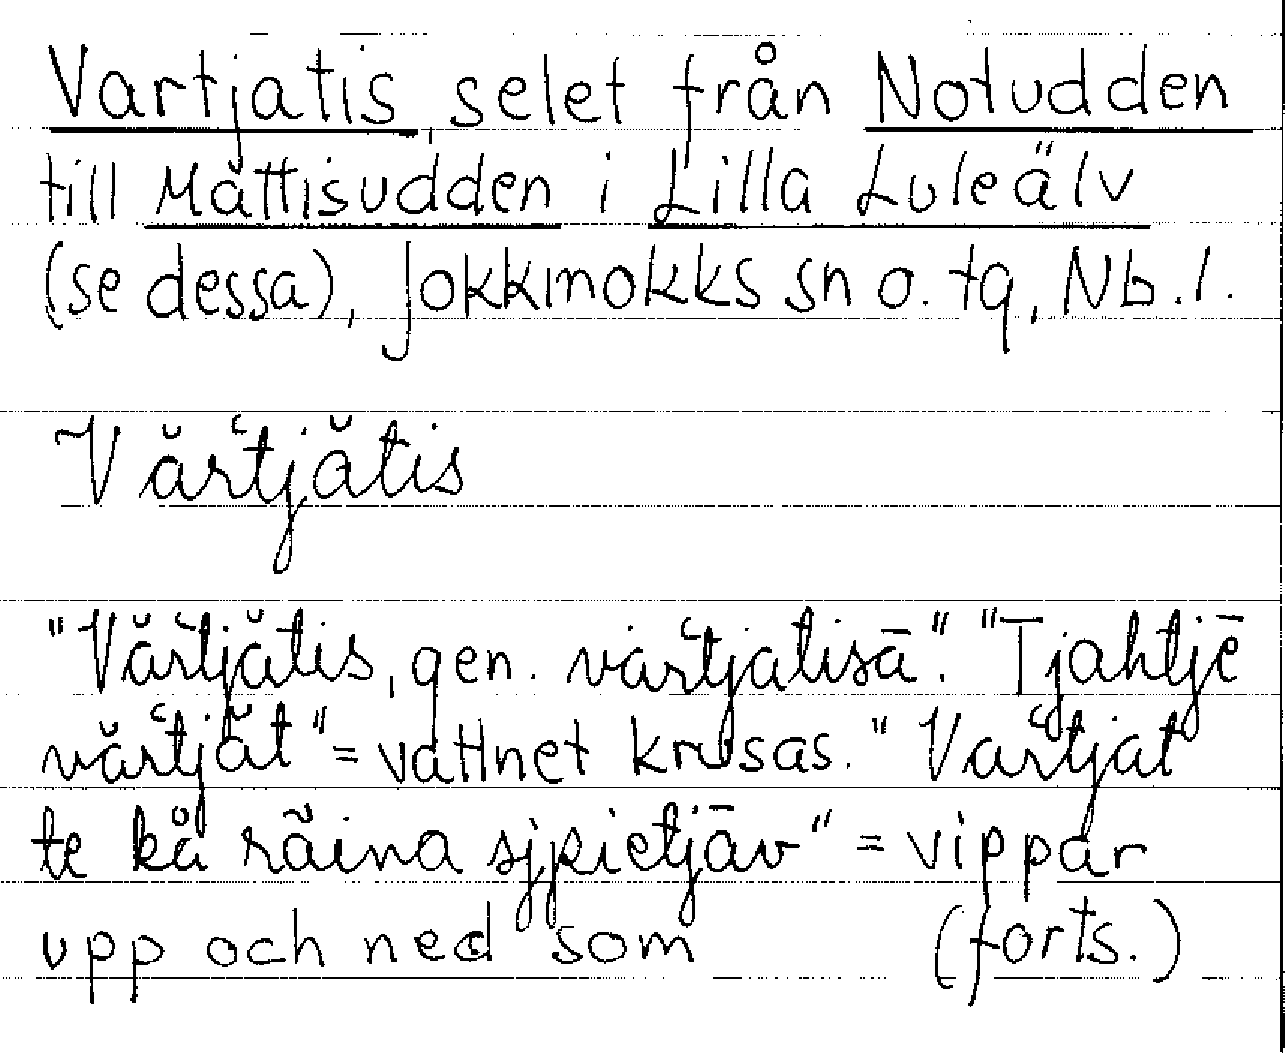 Vartjatis, selet från Notudden
till Mattisudden i Lilla Luleälv
(se dessa), Jokkmokks sn o. tg, Nb. l.
Vărťjătis
"Vărťjătis, gen. varťjatisā". "Tjahtjē
vărťjăt" = vattnet krusas. "Varťjat
te kå rãina sjpietjāv" = vippar
upp och ned som (forts.)